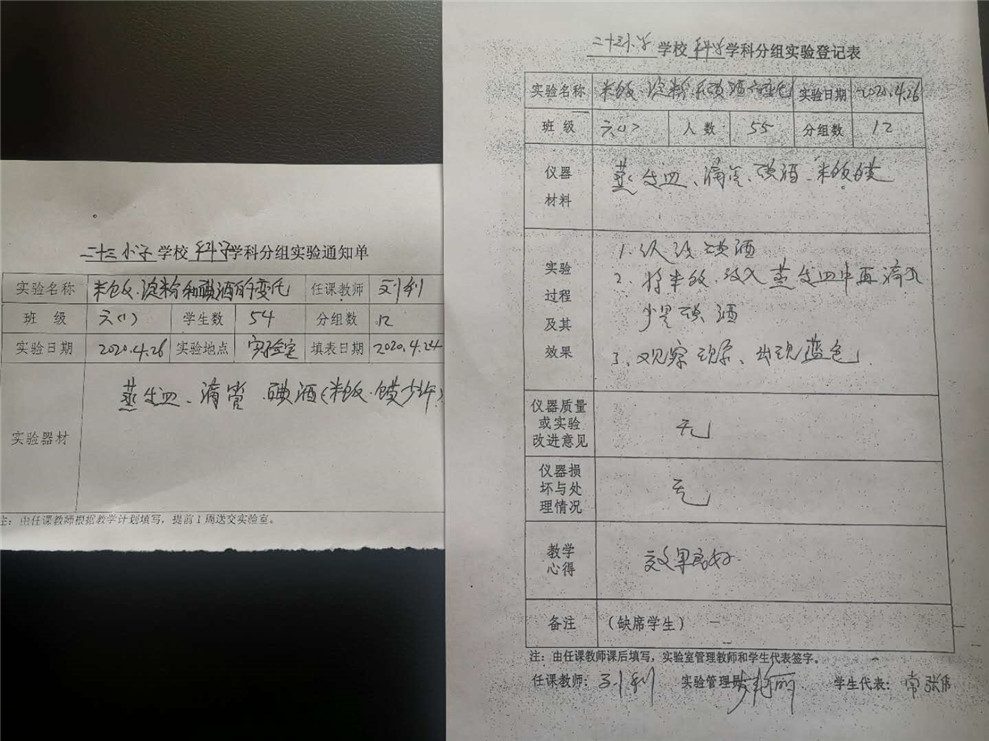 二十三小学学校科学学科分组实验通知单
实验名称 米饭、淀粉和碘酒的变化 任课教师 刘利
班 级 六(1) 学生数 54 分组数 12
实验日期 2020.4.26 实验地点 实验室 填表日期 2020.4.24
实验器材 蒸发皿、滴管、碘酒(米饭、馍少许)
注：由任课教师根据教学计划填写，提前1周送交实验室。
二十三小学学校科学学科分组实验登记表
实验名称 米饭、淀粉和碘酒的变化 实验日期 2020.4.26
班 级 六(1) 人 数 55 分组数 12
仪器
材料
蒸发皿、滴管、碘酒、米饭、馍
实验
过程
及其
效果
1. 碘酒
2. 将米饭、放入蒸发皿中再滴入
少量碘酒
3、观察现象、出现蓝色.
仪器质量
或实验
改进意见
无
仪器损
坏与处
理情况
无
教学
心得
效果良好
备注 （缺席学生）
注：由任课教师课后填写，实验室管理教师和学生代表签字。
任课教师：刘利 实验管理员 学生代表：